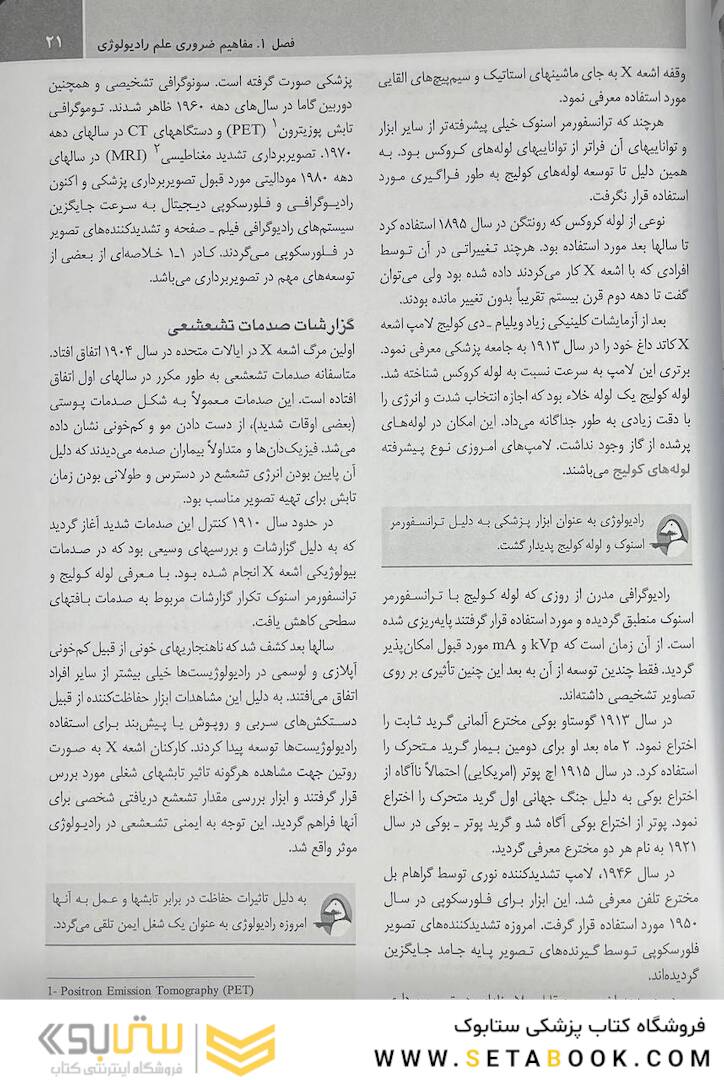 فصل ۱. مفاهیم ضروری علم رادیولوژی
۲۱
وقفه اشعه X به جای ماشینهای استاتیک و سیم‌پیچ‌های القایی
مورد استفاده معرفی نمود.
هرچند که ترانسفورمر اسنوک خیلی پیشرفته‌تر از سایر ابزار
و تواناییهای آن فراتر از تواناییهای لوله‌های کروکس بود. به
همین دلیل تا توسعه لوله‌های کولیج به طور فراگیری مورد
استفاده قرار نگرفت.
نوعی از لوله کروکس که رونتگن در سال ۱۸۹۵ استفاده کرد
تا سالها بعد مورد استفاده بود. هرچند تغییراتی در آن توسط
افرادی که با اشعه X کار می‌کردند داده شده بود ولی می‌توان
گفت تا دهه دوم قرن بیستم تقریباً بدون تغییر مانده بودند.
بعد از آزمایشات کلینیکی زیاد ویلیام ـ دی کولیج لامپ اشعه
X کاتد داغ خود را در سال ۱۹۱۳ به جامعه پزشکی معرفی نمود.
برتری این لامپ به سرعت نسبت به لوله کروکس شناخته شد.
لوله کولیج یک لوله خلاء بود که اجازه انتخاب شدت و انرژی را
با دقت زیادی به طور جداگانه می‌داد. این امکان در لوله‌های
پرشده از گاز وجود نداشت. لامپ‌های امروزی نوع پیشرفته
لوله‌های کولیج می‌باشند.
رادیولوژی به عنوان ابزار پزشکی به دلیل ترانسفورمر
اسنوک و لوله کولیج پدیدار گشت.
رادیوگرافی مدرن از روزی که لوله کولیج با ترانسفورمر
اسنوک منطبق گردیده و مورد استفاده قرار گرفتند پایه‌ریزی شده
است. از آن زمان است که kVp و mA مورد قبول امکان‌پذیر
گردید. فقط چندین توسعه از آن به بعد این چنین تأثیری بر روی
تصاویر تشخیصی داشته‌اند.
در سال ۱۹۱۳ گوستاو بوکی مخترع آلمانی گرید ثابت را
اختراع نمود. ۲ ماه بعد او برای دومین بیمار گرید متحرک را
استفاده کرد. در سال ۱۹۱۵ اچ پوتر (امریکایی) احتمالاً ناآگاه از
اختراع بوکی به دلیل جنگ جهانی اول گرید متحرک را اختراع
نمود. پوتر از اختراع بوکی آگاه شد و گرید پوتر ـ بوکی در سال
۱۹۲۱ به نام هر دو مخترع معرفی گردید.
در سال ۱۹۴۶، لامپ تشدیدکننده نوری توسط گراهام بل
مخترع تلفن معرفی شد. این ابزار برای فلورسکوپی در سال
۱۹۵۰ مورد استفاده قرار گرفت. امروزه تشدیدکننده‌های تصویر
فلورسکوپی توسط گیرنده‌های تصویر پایه جامد جایگزین
گردیده‌اند.
پزشکی صورت گرفته است. سونوگرافی تشخیصی و همچنین
دوربین گاما در سال‌های دهه ۱۹۶۰ ظاهر شدند. توموگرافی
تابش پوزیترون۱ (PET) و دستگاههای CT در سالهای دهه
۱۹۷۰. تصویربرداری تشدید مغناطیسی۲ (MRI) در سالهای
دهه ۱۹۸۰ مودالیتی مورد قبول تصویربرداری پزشکی و اکنون
رادیوگرافی و فلورسکوپی دیجیتال به سرعت جایگزین
سیستم‌های رادیوگرافی فیلم ـ صفحه و تشدیدکننده‌های تصویر
در فلورسکوپی می‌گردند. کادر ۱ـ۱ خلاصه‌ای از بعضی از
توسعه‌های مهم در تصویربرداری می‌باشد.
گزارشات صدمات تشعشعی
اولین مرگ اشعه X در ایالات متحده در سال ۱۹۰۴ اتفاق افتاد.
متاسفانه صدمات تشعشعی به طور مکرر در سالهای اول اتفاق
افتاده است. این صدمات معمولاً به شکل صدمات پوستی
(بعضی اوقات شدید)، از دست دادن مو و کم‌خونی نشان داده
می‌شد. فیزیک‌دان‌ها و متداولاً بیماران صدمه می‌دیدند که دلیل
آن پایین بودن انرژی تشعشع در دسترس و طولانی بودن زمان
تابش برای تهیه تصویر مناسب بود.
در حدود سال ۱۹۱۰ کنترل این صدمات شدید آغاز گردید
که به دلیل گزارشات و بررسیهای وسیعی بود که در صدمات
بیولوژیکی اشعه X انجام شده بود. با معرفی لوله کولیج و
ترانسفورمر اسنوک تکرار گزارشات مربوط به صدمات بافتهای
سطحی کاهش یافت.
سالها بعد کشف شد که ناهنجاریهای خونی از قبیل کم‌خونی
آپلازی و لوسمی در رادیولوژیست‌ها خیلی بیشتر از سایر افراد
اتفاق می‌افتند. به دلیل این مشاهدات ابزار حفاظت‌کننده از قبیل
دستکش‌های سربی و روپوش یا پیش‌بند برای استفاده
رادیولوژیست‌ها توسعه پیدا کردند. کارکنان اشعه X به صورت
روتین جهت مشاهده هرگونه تاثیر تابشهای شغلی مورد بررس
قرار گرفتند و ابزار بررسی مقدار تشعشع دریافتی شخصی برای
آنها فراهم گردید. این توجه به ایمنی تشعشعی در رادیولوژی
موثر واقع شد.
به دلیل تاثیرات حفاظت در برابر تابشها و عمل به آنها
امروزه رادیولوژی به عنوان یک شغل ایمن تلقی می‌گردد.
1- Positron Emission Tomography (PET)
فروشگاه کتاب پزشکی ستابوک
WWW.SETABOOK.COM
ستابوک
فروشگاه اینترنتی کتاب